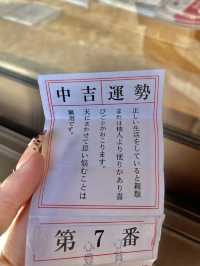 中吉運勢
正しい生活をしていると親類
または他人より便りがあり喜
びごとがおこります。
天にまかせて思い悩むことは
無用です。
第7番